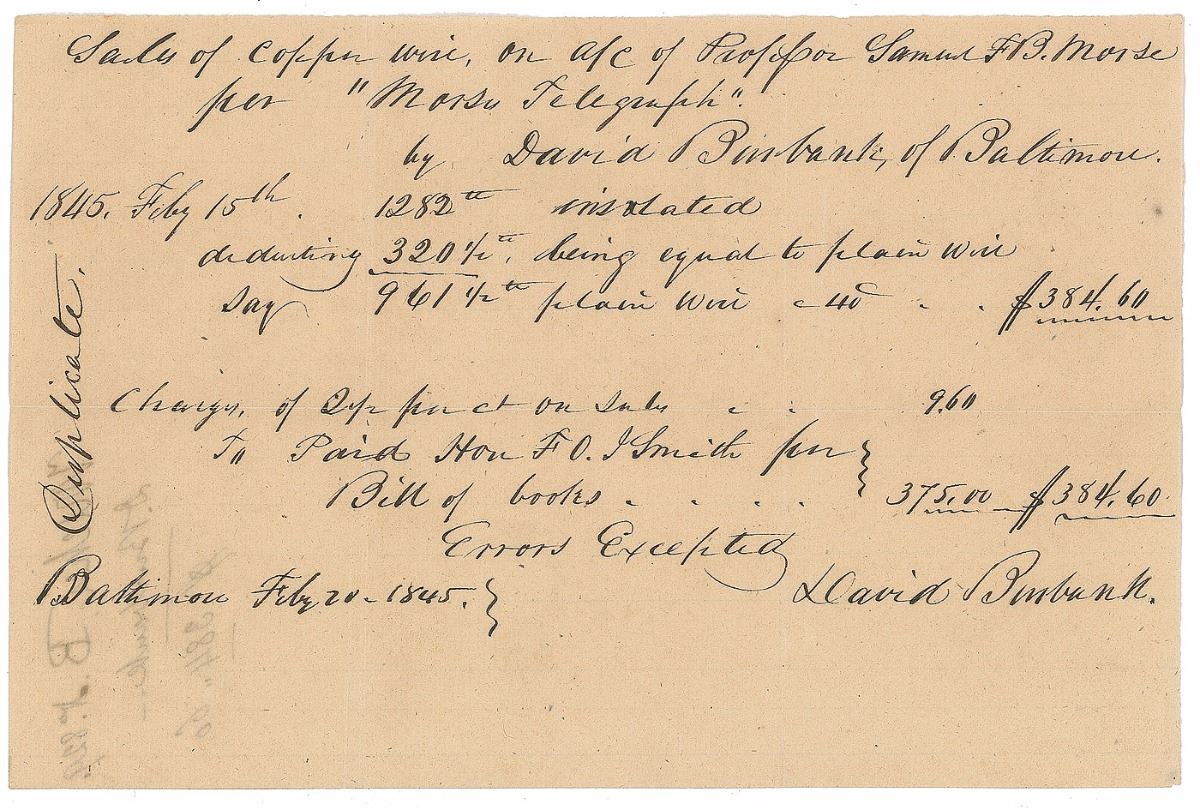 Sales of Copper wire, on a/c of Professor Samuel F B. Morse
per "Morse Telegraph".
by David Burbank, of Baltimore.
1845. Feby 15th. 1282 lb insolated
deducting 320 1/2 lb, being equal to plain wire
say 961 1/2 lb plain wire @ 40 " . $384.60
Charges, of 2 1/2 per ct on sales " " 9.60
To Paid Hon F O. J Smith per
Bill of books . . . . 375.00 $384.60
Errors Excepted
Baltimore Feby 20 - 1845. David Burbank.
Duplicate.